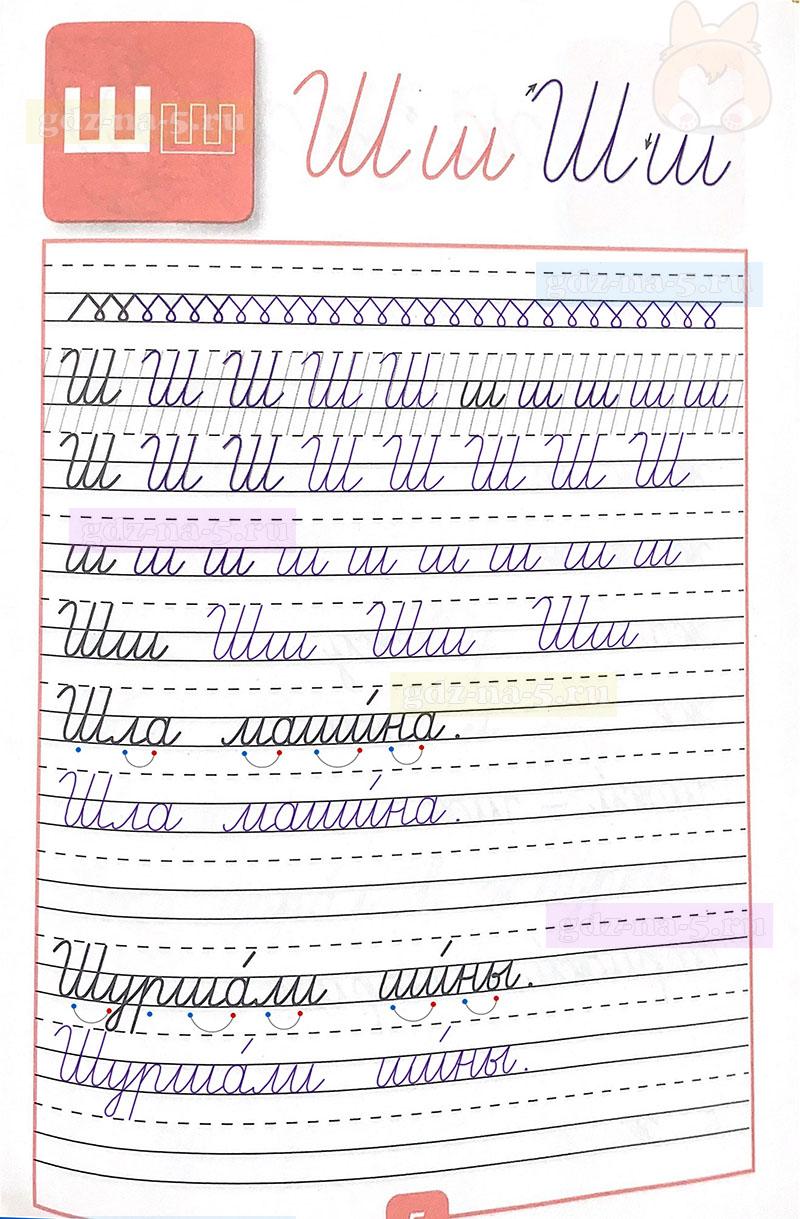 Ш ш Ш ш Ш ш
gdz-na-5.ru
gdz-na-5.ru
Ш Ш Ш Ш Ш ш ш ш ш ш
Ш Ш Ш Ш Ш Ш Ш Ш
gdz-na-5.ru
ш ш ш ш ш ш ш ш ш
Шш Шш Шш Шш
gdz-na-5.ru
Шла маши́на.
Шла маши́на.
gdz-na-5.ru
Шурша́ли ши́ны.
Шурша́ли ши́ны.